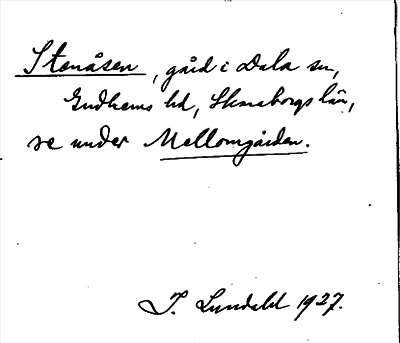 Stenåsen, gård i Dala sn,
Gudhems hd, Skaraborgs län,
se under Mellomgården.
I. Lundahl 1927.